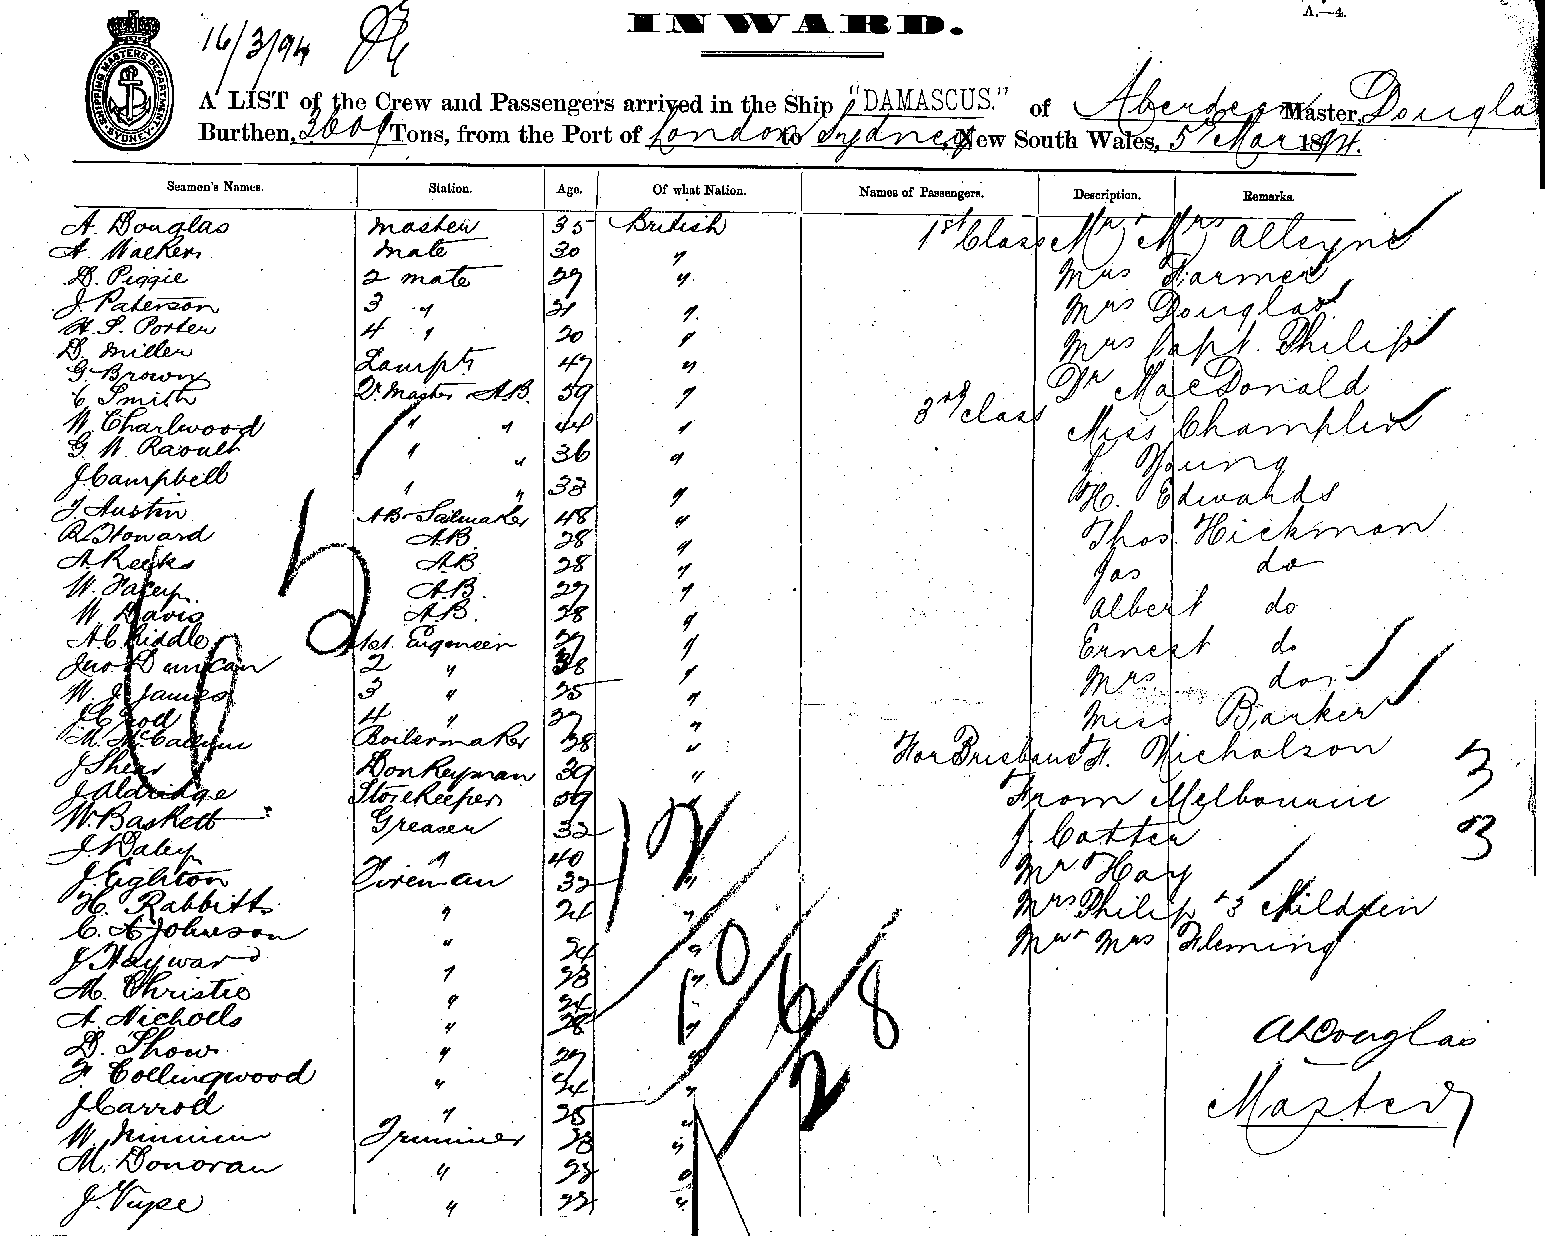 INWARD.
A.—4.
16/3/94
SHIPPING MASTERS DEPARTMENT SYDNEY
A LIST of the Crew and Passengers arrived in the Ship "DAMASCUS." of Aberdeen Master, Douglas
Burthen, 3609 Tons, from the Port of London to Sydney New South Wales, 5 Mar 1894.
Seamen's Names. Station. Age. Of what Nation. Names of Passengers. Description. Remarks.
A. Douglas master 35 British 1st Class Mr & Mrs Alleyne
mate 30 " Mrs Farmer
D. Piggie 2 mate 29 "
J. Paterson 3 " 21 " Mrs Douglas
H. S. Porter 4 " 20 " Mrs Capt. Philip
D. Miller
G. Brown Lampt 47 " Dr MacDonald
C Smith Qr. Master AB. 39 " 3rd Class
W. Charlwood " " 44 " Miss Champlin
G. W. Raoult " " 36 " Young
J Campbell " " 33 " H. Edwards
J. Austin AB Sailmaker 48 " Thos. Hickman
R. Howard AB 28 "
A. Reeks AB 28 " Jas do
W. Facey AB. 27 " Albert do
W Davis AB 28 "
A. C. Riddle 1st. Engeneer " Ernest do
Jno Duncan 2 " 38 " Mrs do
W. J. James 3 " 25 "
4 " " Miss Barker
M. McCallum Boilermaker 38 " For Brisbane H. Nicholson
J Shear Donkeyman 39 " 3
J Aldridge Storekeeper 39 " From Melbourne
W Baskett Greaser 32 J. Cotter 3
J. Daley " 40 Mr Hay
J. Eighton Fireman 32 "
H. Rabbitts " 24 " Mrs Philip & 3 Children
C. A. Johnson " 24 " Mr & Mrs Fleming
J Hayward " 23 "
M. Christie " 24
A. Nicholls " 28 " A Douglas
D. Show " 27 "
F. Collingwood " 24 " Master
J Carrod " 25 "
W. Trimmer 23 "
M. Donovan " 23 "
J. " 22 "
12
10
6
28